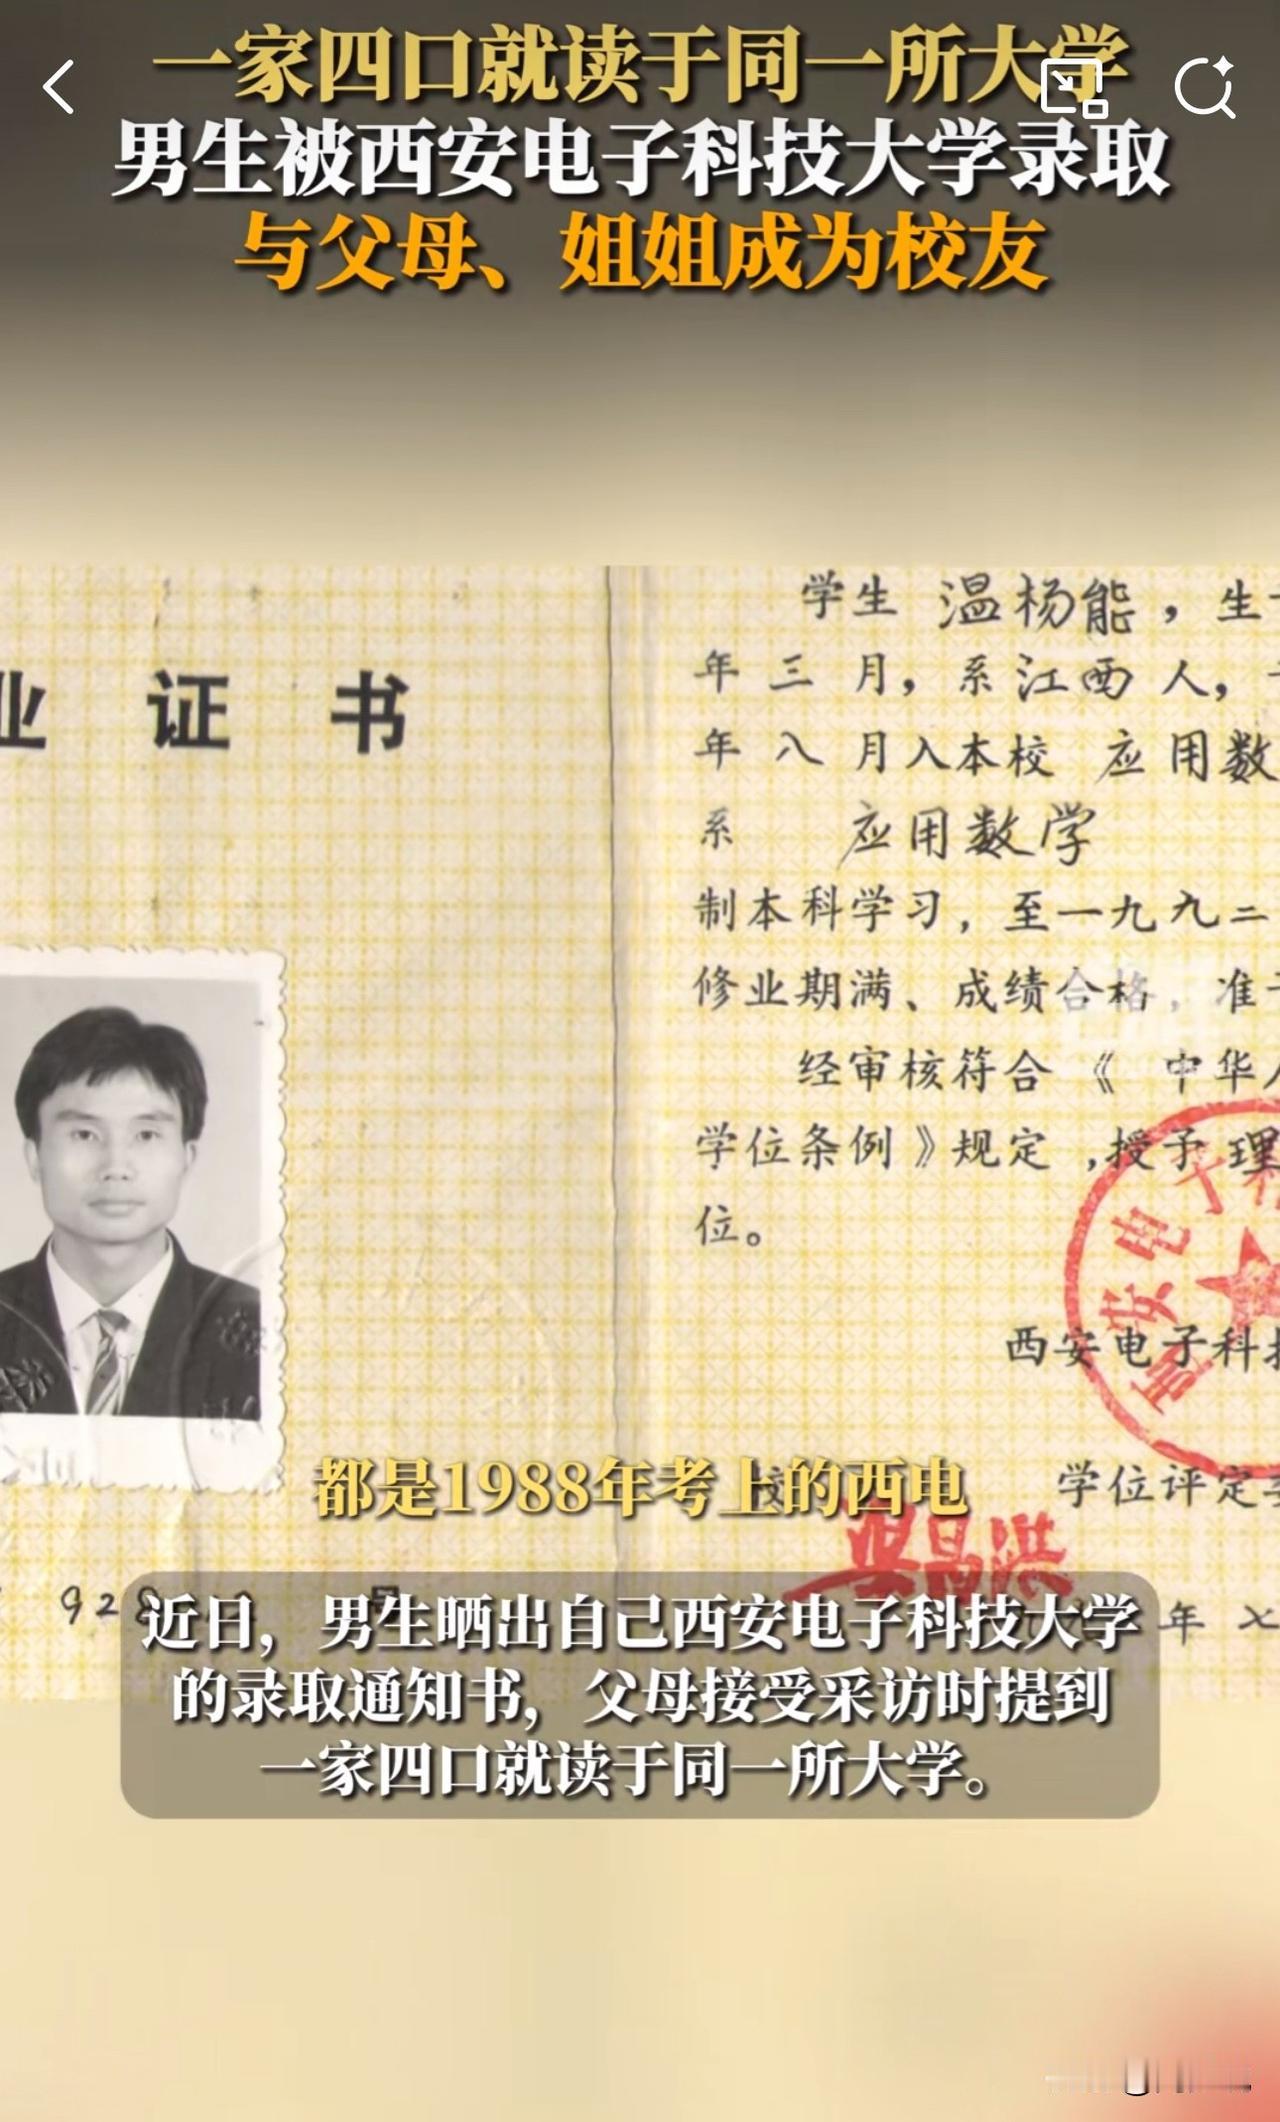 一家四口就读于同一所大学
男生被西安电子科技大学录取
与父母、姐姐成为校友
业 证 书
学生 温杨能，生
年 三 月，系江西 人，
年 八 月入本校 应用数
系 应用数学
制本科学习，至一九九二
修业期满、成绩合格，准
经审核符合《 中华
学位条例》规定，授予 理
位。
西安电子科
西安电子科技
学位评定
校
都是1988年考上的西电
928
年 七
近日，男生晒出自己西安电子科技大学
的录取通知书，父母接受采访时提到
一家四口就读于同一所大学。